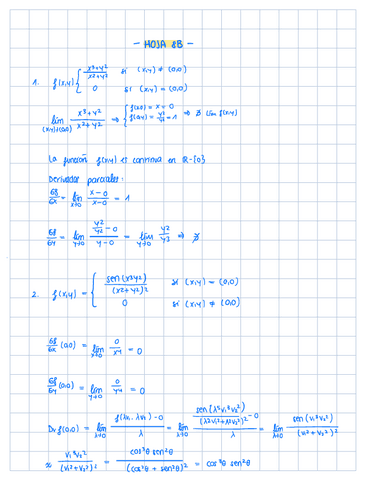 - HOJA 8B -
1. f(x,y) { x³+y² / x²+y² si (x,y) ≠ (0,0)
0 si (x,y) = (0,0)
lím (x,y)→(0,0) x³+y² / x²+y² ⇒ { f(x,0) = x = 0
f(0,y) = y²/y² = 1 ⇒ ∄ lím f(x,y)
La función f(x,y) es continua en R-{0}
Derivadas parciales:
δf/δx = lím x→0 x-0 / x-0 = 1
δf/δy = lím y→0 y²/y² - 0 / y-0 = lím y→0 y²/y³ ⇒ ∄
2. f(x,y) = { sen(x³y²) / (x²+y²)² si (x,y) = (0,0)
0 si (x,y) ≠ (0,0)
δf/δx (0,0) = lím x→0 0/x⁴ = 0
δf/δy (0,0) = lím y→0 0/y⁴ = 0
Dv f(0,0) = lím λ→0 f(λv₁, λv₂) - 0 / λ = lím λ→0 sen(λ⁵v₁³v₂²) / (λ²v₁²+λ²v₂²)² - 0 / λ = lím λ→0 sen(v₁³v₂²) / (v₁²+v₂²)²
≈ v₁³v₂² / (v₁²+v₂²)² = cos³θ sen²θ / (cos²θ + sen²θ)² = cos³θ sen²θ